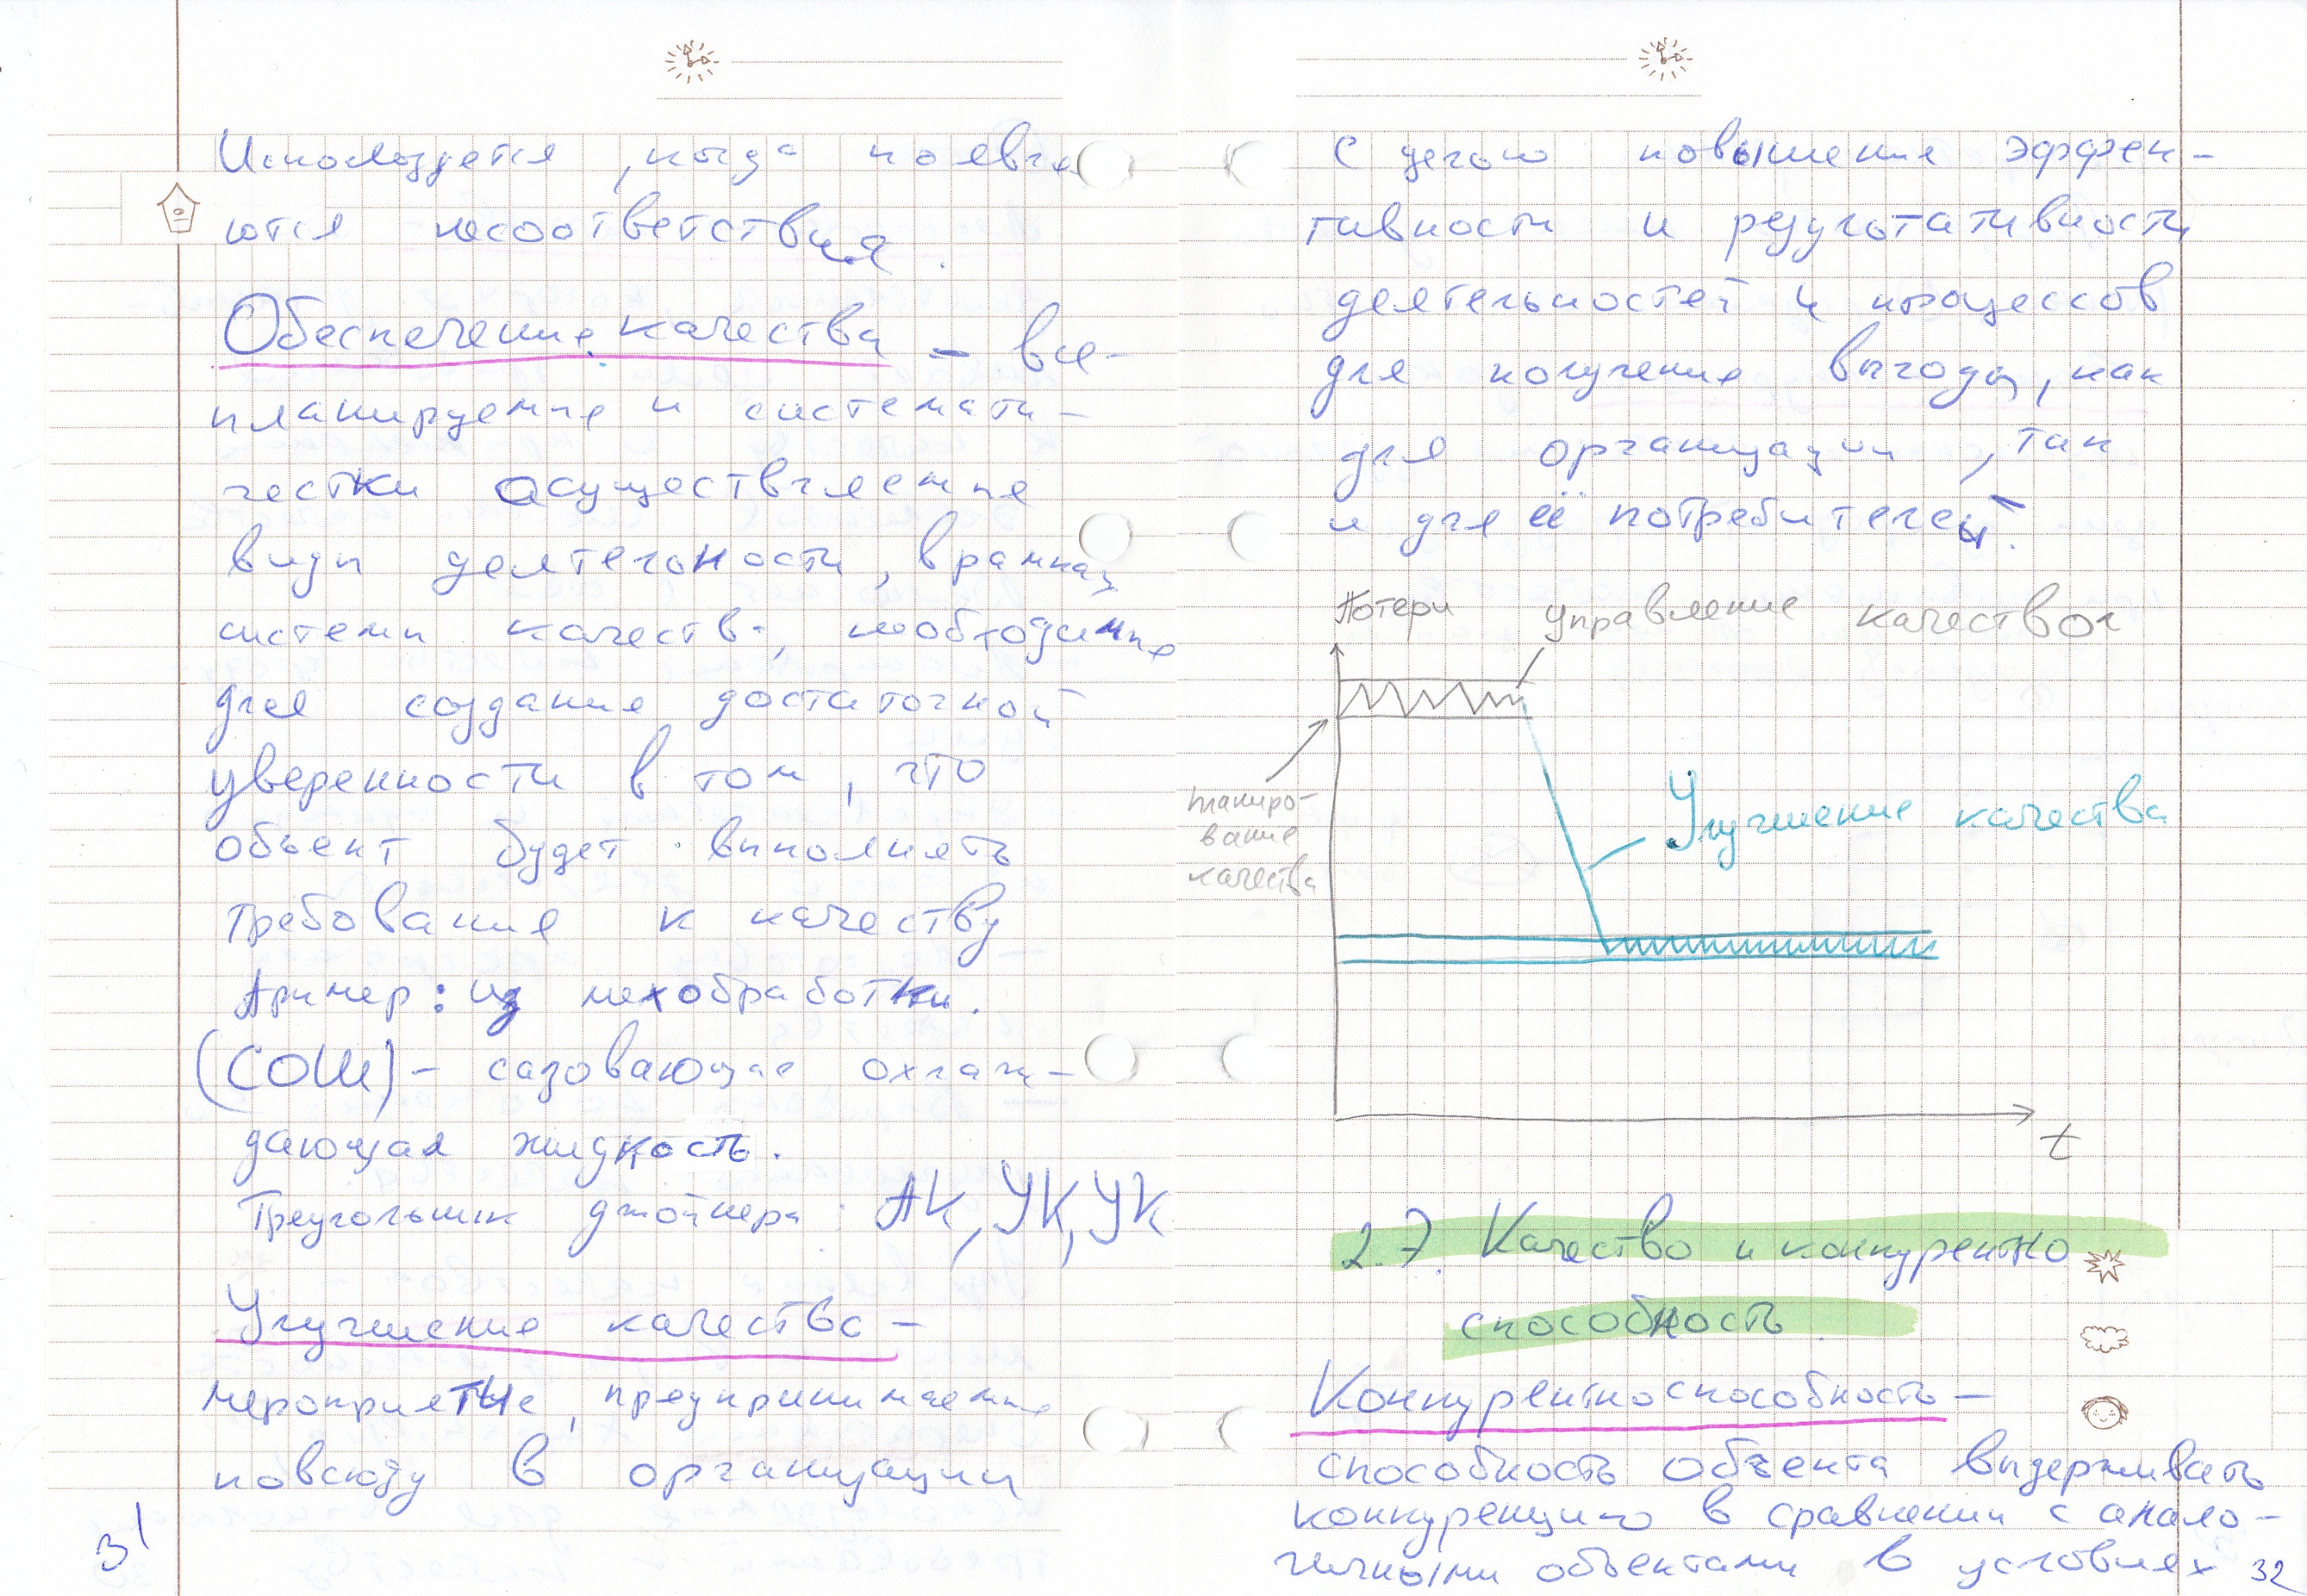 Используется, когда появля
ются несоответствия.
Обеспечение качества – все
планируемые и системати-
честки осуществляемые
виды деятельности, в рамках
системы качества, необходимые
для создания достаточной
уверенности в том, что
объект будет выполнять
требования к качеству
Пример: из мехобработки.
(СОЖ) –
дающая жидкость.
Треугольник джойнера: УК, УК
Улучшение качества –
мероприятые, предпринимаемые
повсюду в организации
31
с целью повышение эффек-
тивности и результативности
деятельностей и процессов
для получение выгоды, как
для организации, так
и для её потребителей.
Потери управление качеством
планиро-
вание
качества
Улучшение качества
t
2.7. Качество и конкурентно
способность.
Конкурентноспособность –
способность объекта выдерживать
конкуренцию в сравнении с анало-
гичными объектами в условиях
32